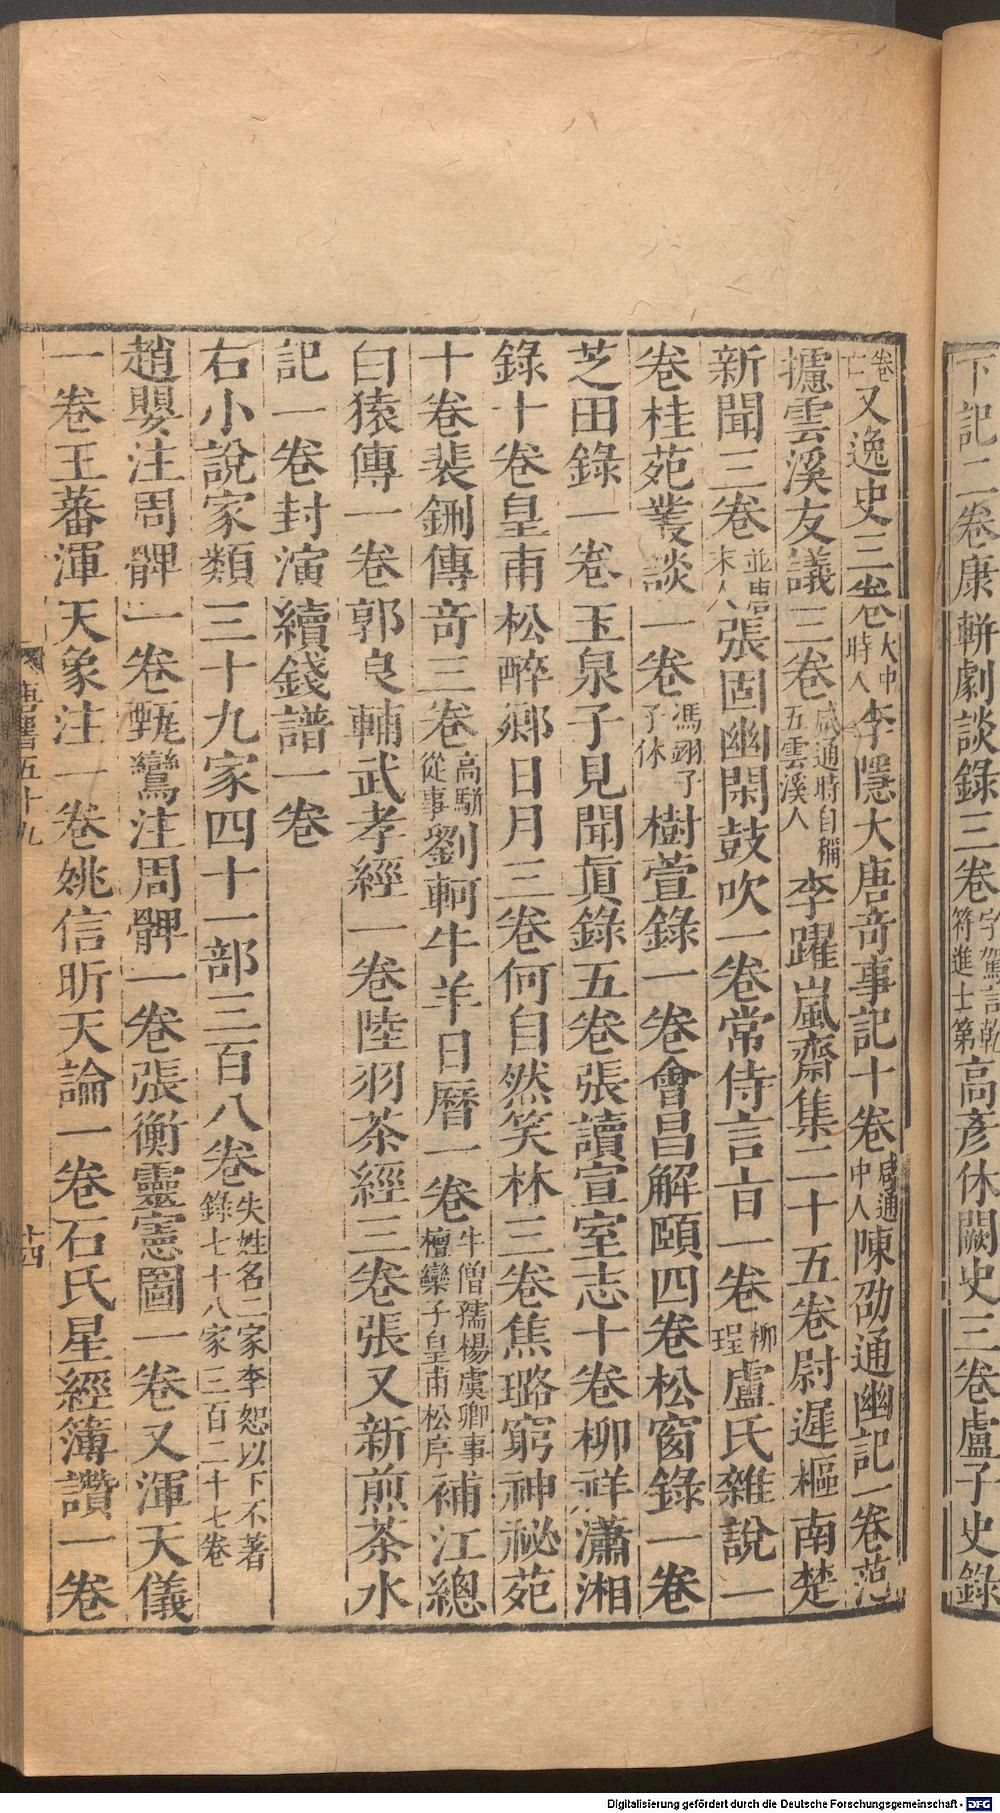 下記二卷康軿劇談錄三卷字駕言乾符進士第高彥休闕史三卷盧子史錄
卷亡又逸史三卷大中時人李隱大唐奇事記十卷咸通中人陳劭通幽記一卷范
攄雲溪友議三卷咸通時自稱五雲溪人李躍嵐齋集二十五卷尉遲樞南楚
新聞三卷並唐末人張固幽閑鼓吹一卷常侍言旨一卷柳珵盧氏雜說一
卷桂苑叢談一卷馮翊子子休樹萱錄一卷會昌解頤四卷松窗錄一卷
芝田錄一卷玉泉子見聞眞錄五卷張讀宣室志十卷柳祥瀟湘
錄十卷皇甫松醉鄉日月三卷何自然笑林三卷焦璐窮神祕苑
十卷裴鉶傳奇三卷高駢從事劉軻牛羊日曆一卷牛僧孺楊虞卿事檀欒子皇甫松序補江總
白猿傳一卷郭良輔武孝經一卷陸羽茶經三卷張又新煎茶水
記一卷封演續錢譜一卷
右小說家類三十九家四十一部三百八卷失姓名二家李恕以下不著錄七十八家三百二十七卷
趙嬰注周髀一卷甄鸞注周髀一卷張衡靈憲圖一卷又渾天儀
一卷王蕃渾天象注一卷姚信昕天論一卷石氏星經簿讚一卷
唐書五十九 十四
Digitalisierung gefördert durch die Deutsche Forschungsgemeinschaft - DFG